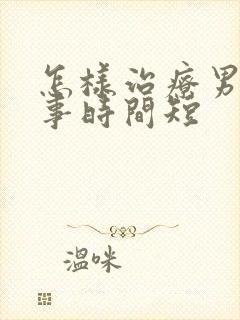 怎樣治療男
事時間短
溫咪